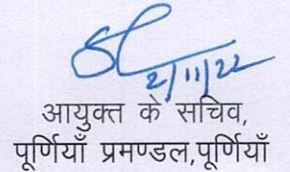 2/11/22
आयुक्त के सचिव,
पूर्णियाँ प्रमण्डल,पूर्णियाँ